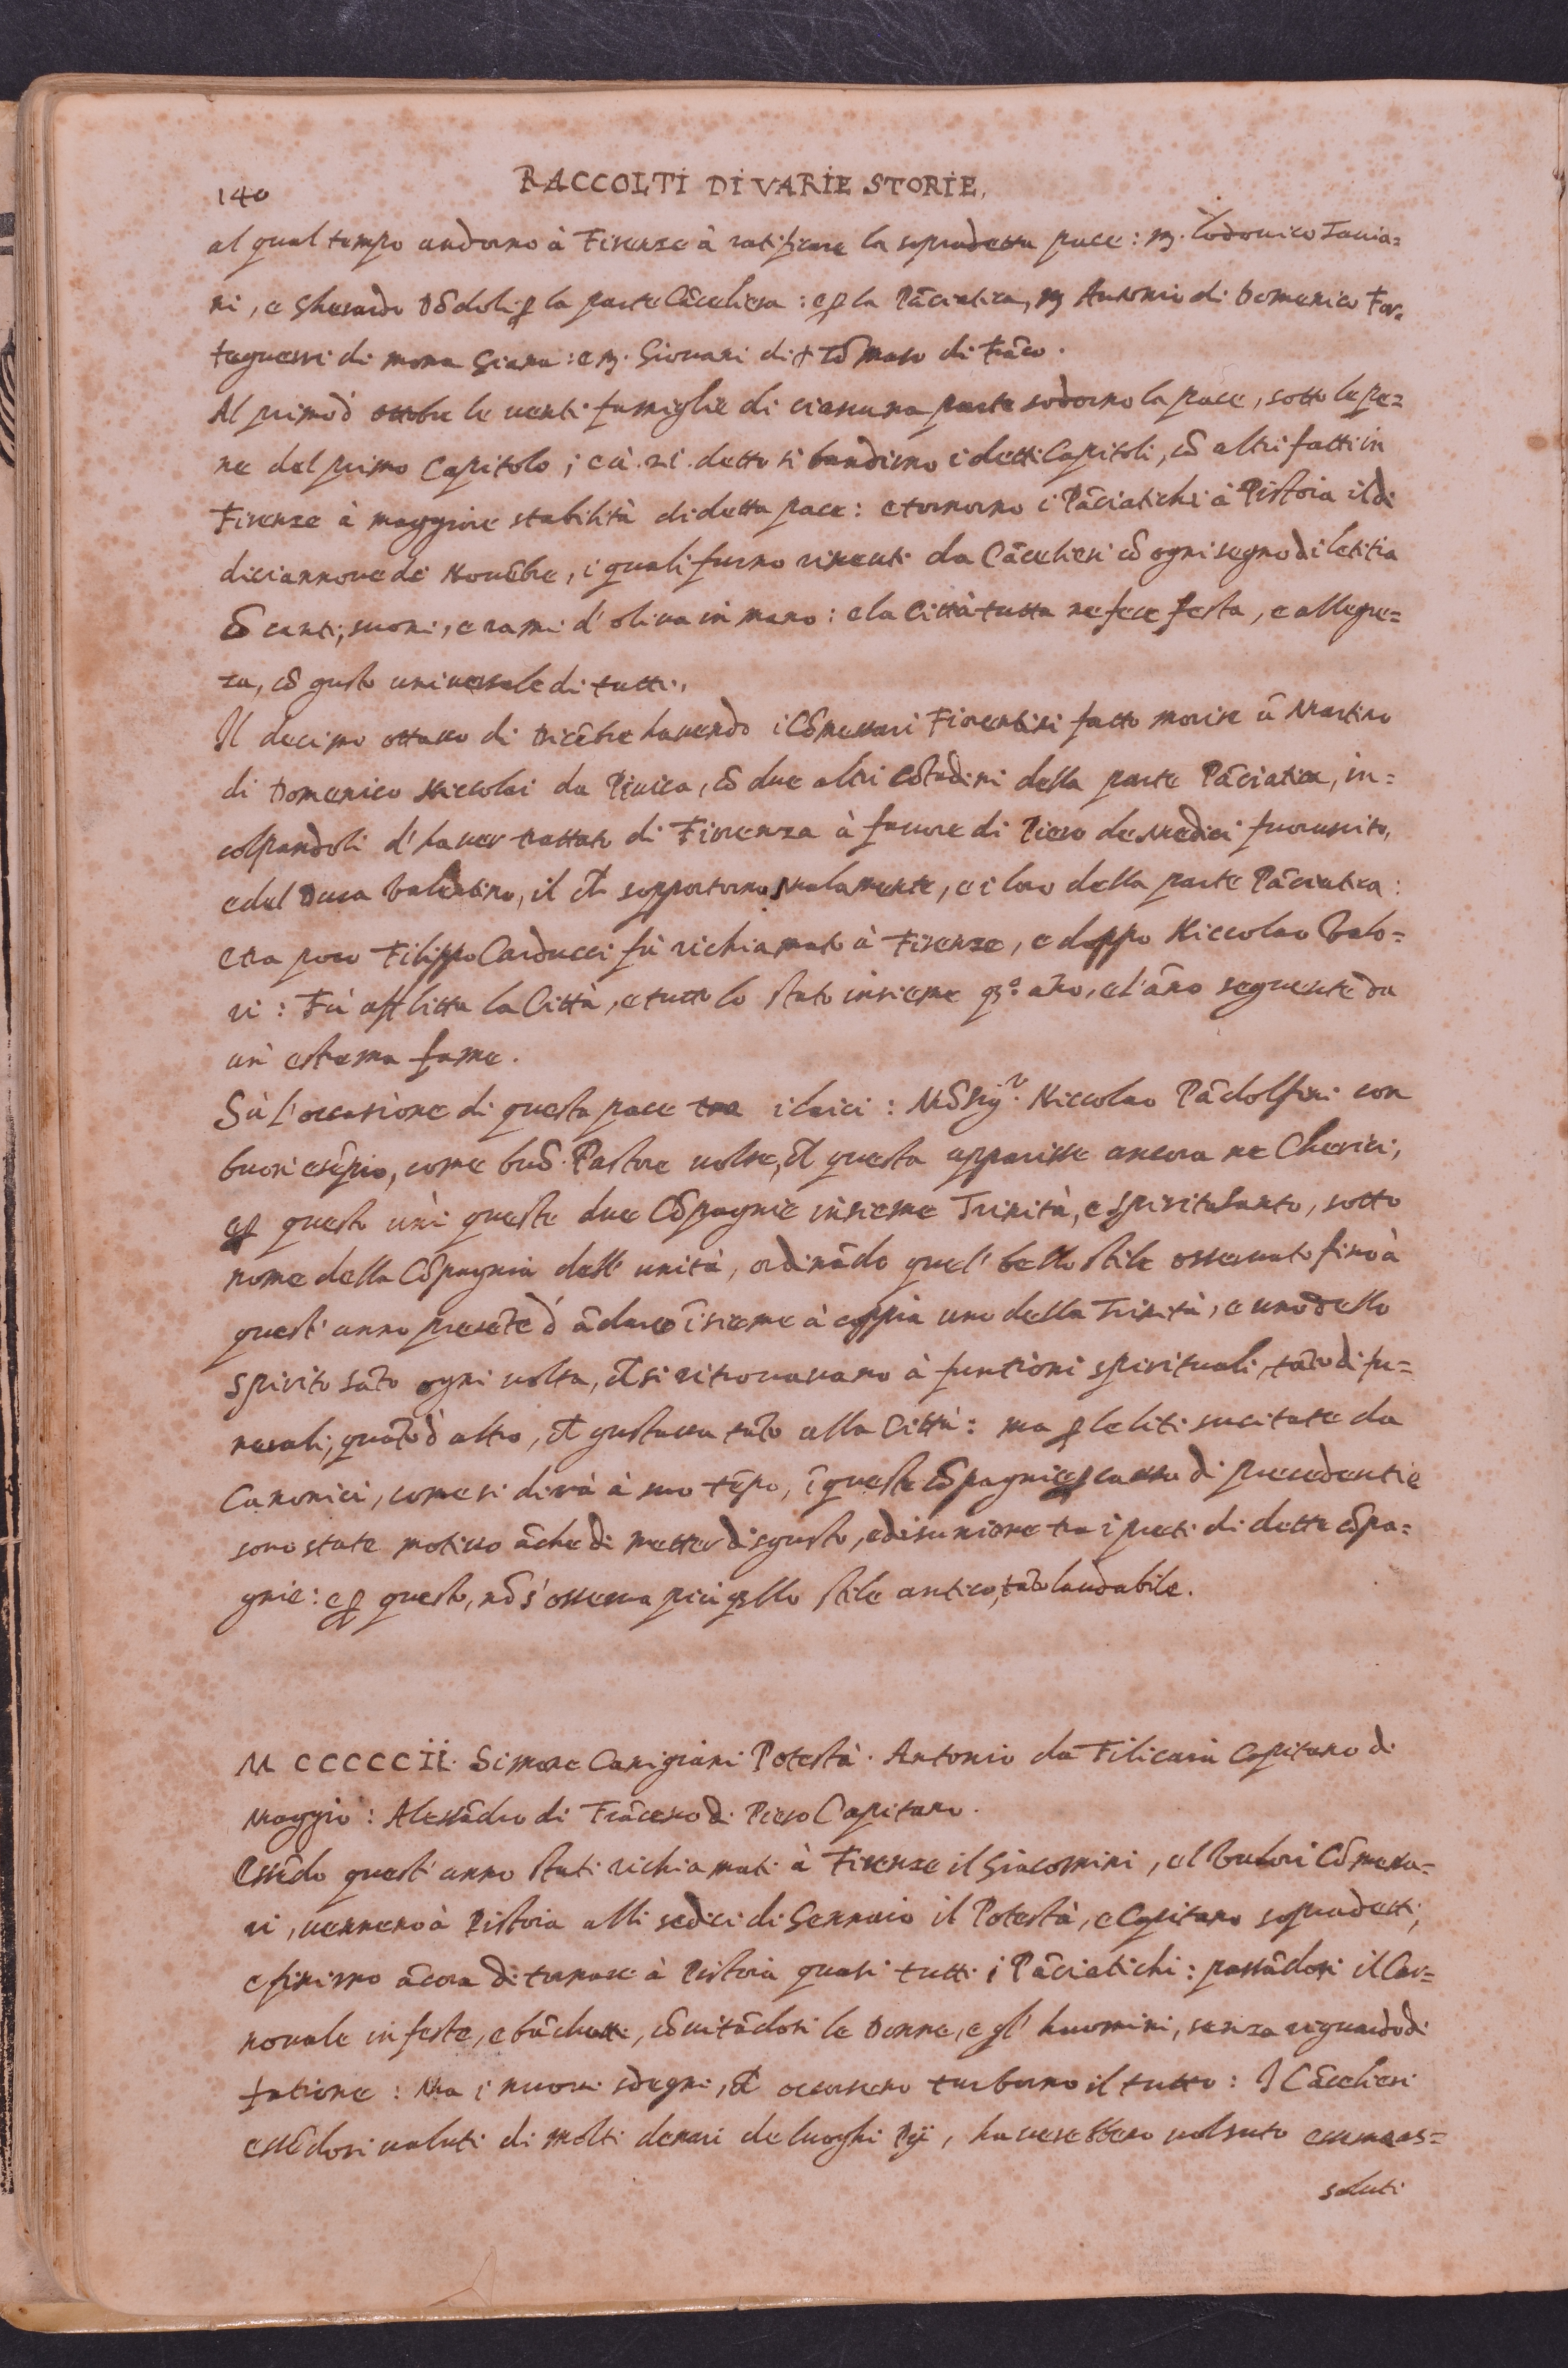 140
RACCOLTI DI VARIE STORIE.
al qual tempo andorno à Firenze à ratificare la sopradetta pace: M. Lodovico Tavia=
ni, e Gherardo Dõdoli ꝑ la parte Cãceliera: e ꝑ la Pãciatica, M Antonio di Domenico For=
teguerri di mona Giana: e M. Giovani di Tõmaso di Frãco.
Al primo d' ottobre le venti famiglie di ciascuna parte sodorno la pace, sotto le pe=
ne del primo Capitolo; e à. 21. detto si bandirno i detti Capitoli, cõ altri fatti in
Firenze à maggiore stabilità di detta pace: e tornorno i Pãciatichi à Pistoia il dì
diciannove di Novẽbre, i quali furno riceuti da Cãcelieri cõ ogni segno di letitia
cõ canti, suoni, e rami d'oliva in mano: e la Città tutta ne fece festa, e allegre=
za, cõ gusto universale di tutti.
Il decimo ottavo di Dicẽbre havendo i Cõmessari Fiorentini fatto morire ũ Martino
di Domenico Niccolai da Piuica, cõ due altri Cõtadini della parte Pãciatica, in=
colpandoli d'haver trattato di Firenza à favore di Piero de Medici fuoruscito,
e del Duca Valentino, il ch̃ sopportorno malamente, e i loro della parte Pãciatica:
e tra poco Filippo Carducci fù richiamato à Firenze, e doppo Niccolao Valo=
ri: Fù afflitta la Città, e tutto lo stato insieme qº. año, e l'ãno seguente da
un' estrema fame.
Sù l'occasione di questa pace tra i laici: Mõsigʳ. Niccolao Pãdolfini con
buon esẽpio, come buõ Pastore volse, ch̃ questa apparisse ancora ne Cherici;
e ꝑ questo unì queste due Cõpagnie insieme Trinità, e Spirito Santo, sotto
nome della Cõpagnia dell' unità, ordinãdo quel' bello stile osservato fino à
quest' anno presẽte d' ãdare ĩsieme à coppia uno della Trinità, e uno dello
Spirito Sãto ogni volta, ch̃ si ritrovavano à funtioni spirituali, tãto di fu=
nerali, quãto d' altro, ch̃ gustava tãto alla Città: ma ꝑ le liti sucitate da
Canonici, come si dirà à suo tẽpo, ĩ queste cõpagnie ꝑ causa di precedentie
sono state motivo ãche di metter disgusto, e disunione tra i preti di dette cõpa=
gnie: e ꝑ questo, nõ s'osserva più qllo stile antico, tãto laudabile.
M CCCCCII. Simone Canigiani Potestà. Antonio da Filicaia Capitano di
Maggio: Alessãdro di Frãcesco di Piero Capitano.
Essẽdo quest' anno stati richiamati à Firenze il Giacomini, e l Valori Cõmessa=
ri, vennero à Pistoia alli sedici di Gennaio il Potestà, e Capitano sopradetti,
e finirno ãcora di tornare à Pistoia quasi tutti i Pãciatichi: passãdosi il Car=
novale in feste, e bãchetti, cõvitãdosi le Donne, e gl' huomini, senza riguardo di
fatione: Ma i nuovi sdegni, ch̃ occorsero turborno il tutto: I Cãcelieri
essẽdosi valuti di molti denari de luoghi Pij, haverebbero volsuto esserne as=
soluti